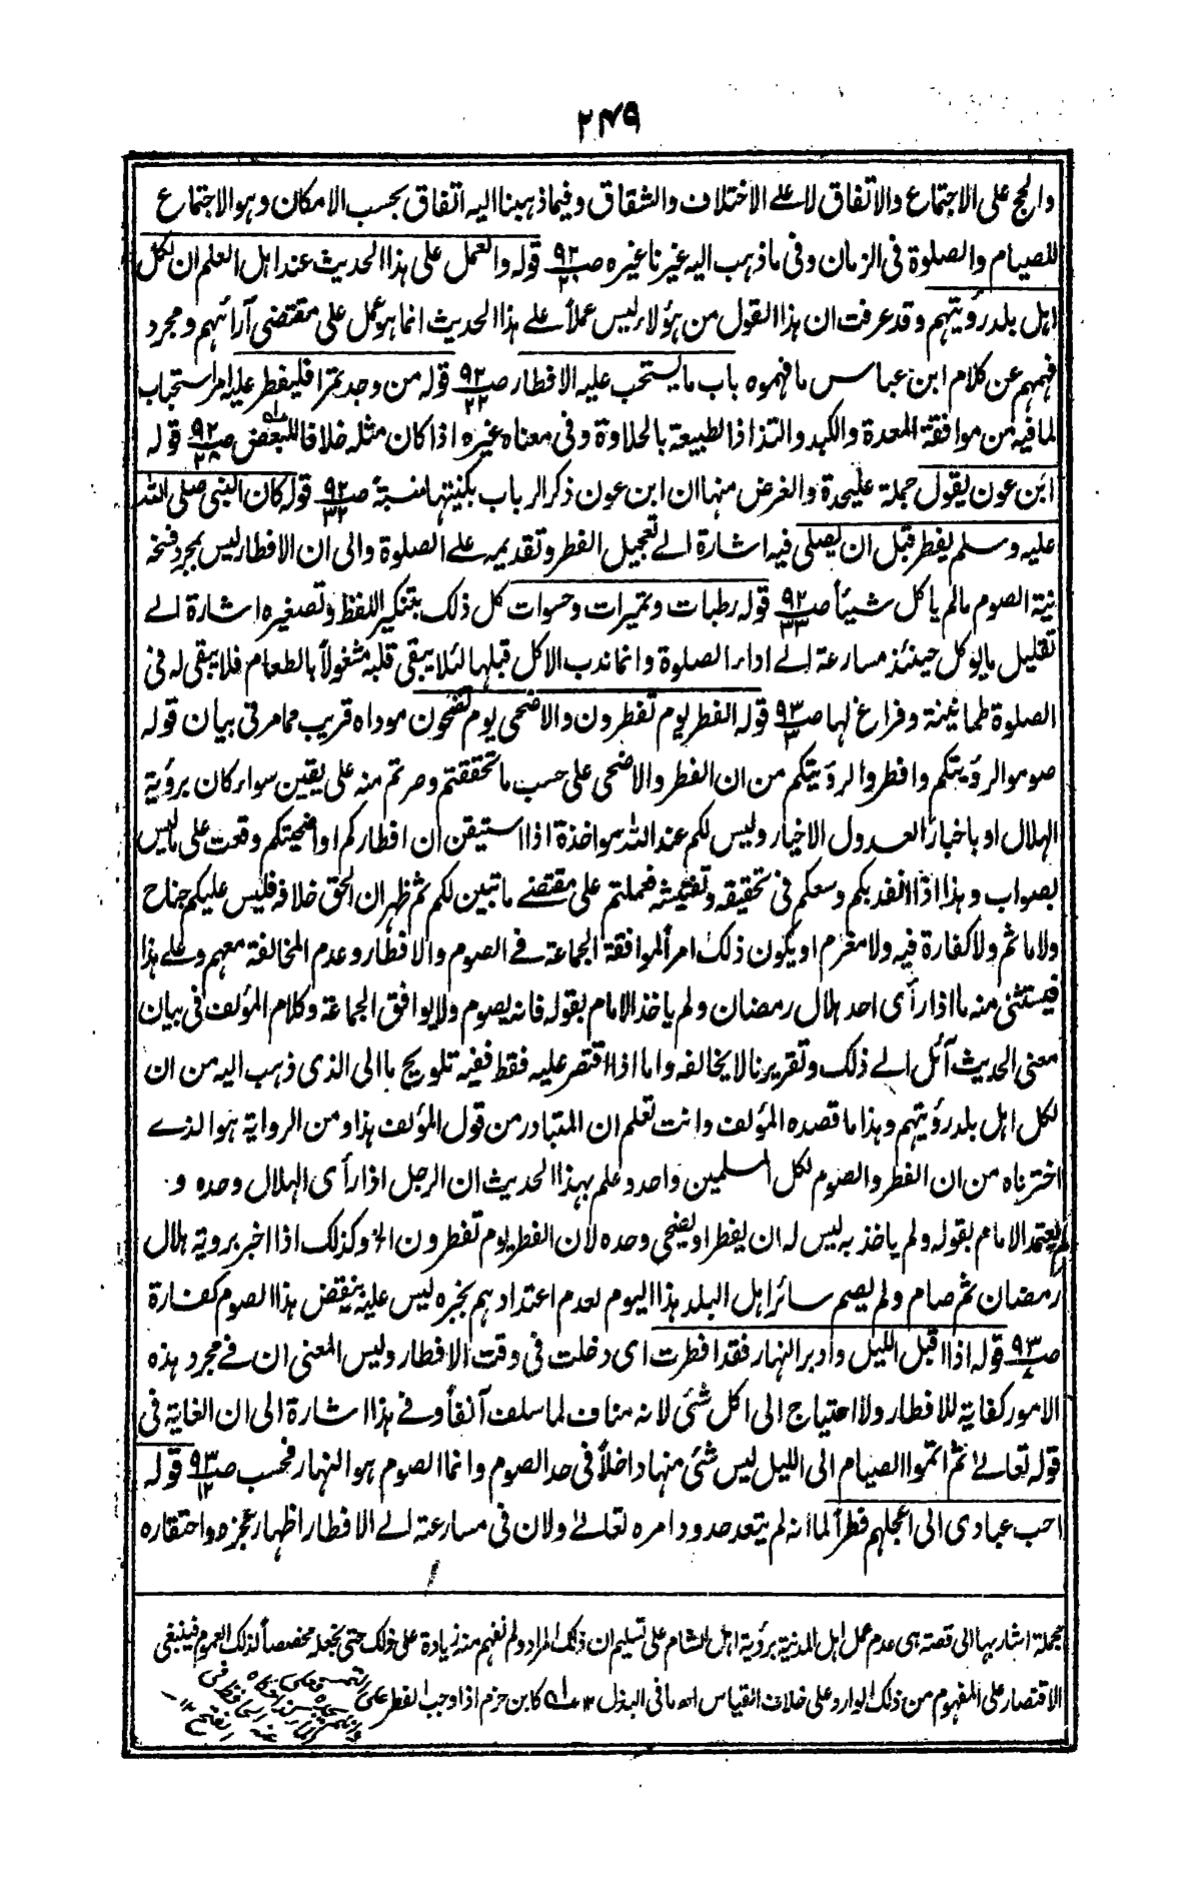 ٢٤٩
والحج على الاجتماع والاتفاق لا على الاختلاف والشقاق وفيما ذهبنا اليه اتفاق بحسب الامكان وهو الاجتماع
للصيام والصلوة فى الزمان وفى ما ذهب اليه غيرنا غيره صـ ٩٢ قوله والعمل على هذا الحديث عند اهل العلم ان لكل
اهل بلد رؤيتهم وقد عرفت ان هذا القول من هؤلاء ليس عملاً على هذا الحديث انما هو عمل على مقتضى آرائهم ومجرد
فهمهم عن كلام ابن عباس ما فهموه باب ما يستحب عليه الافطار صـ ٩٢/٢٢ قوله من وجد تمرا فليفطر عليه امر استحباب
لما فيه من موافقة المعدة والكبد والتذاذ الطبيعة بالحلاوة وفى معناه غيره اذا كان مثله خلافا للبعض صـ ٩٢/٢٨ قوله
ابن عون يقول جملة عليحدة والغرض منها ان ابن عون ذكر الرباب بكنيتها نسبة صـ ٩٢/٣٢ قوله كان النبى صلى الله
عليه وسلم يفطر قبل ان يصلى فيه اشارة الى تعجيل الفطر وتقديمه على الصلوة والى ان الافطار ليس بمجرد فسخه
نية الصوم مالم ياكل شيئاً صـ ٩٢/٣٣ قوله رطبات وتميرات وحسوات كل ذلك بتنكير اللفظ وتصغيره اشارة الى
تقليل ما يوكل حينئذ مسارعة الى اداء الصلوة وانما ندب الاكل قبلها لئلا يبقى قلبه مشغولاً بالطعام فلا يبقى له فى
الصلوة طمانينة وفراغ لها صـ ٩٣/٣ قوله الفطر يوم تفطرون والاضحى يوم تضحون موداه قريب مما مر فى بيان قوله
صوموا لرؤيتكم وافطروا لرؤيتكم من ان الفطر والاضحى على حسب ما تحققتم وصرتم منه على يقين سواء كان برؤية
الهلال او باخبار العدول الاخيار وليس لكم عند الله مواخذة اذا استيقن ان افطاركم او اضحيتكم وقعت على ما ليس
بصواب وهذا اذا انفد بكم وسعكم فى تحقيقه وتفتيشه فعملتم على مقتضى ما تبين لكم ثم ظهر ان الحق خلافه فليس عليكم جناح
ولا ماثم ولا كفارة فيه ولا مغرم او يكون ذلك امراً لموافقة الجماعة فى الصوم والافطار وعدم المخالفة معهم وعلى هذا
فيستثنى منه ما اذا رأى احد هلال رمضان ولم ياخذ الامام بقوله فانه يصوم ولا يوافق الجماعة وكلام المؤلف فى بيان
معنى الحديث آئل الى ذلك وتقريرنا لا يخالفه واما اذا اقتصر عليه فقط ففيه تلويح ما الى الذى ذهب اليه من ان
لكل اهل بلد رؤيتهم وهذا ما قصده المؤلف وانت تعلم ان المتبادر من قول المؤلف هذا ومن الرواية هو الذى
اخترناه من ان الفطر والصوم لكل المسلمين واحد وعلم بهذا الحديث ان الرجل اذا رأى الهلال وحده و
لم يعتمد الامام بقوله ولم ياخذ به ليس له ان يفطر او يضحى وحده لان الفطر يوم تفطرون الخ وكذلك اذا اخبر بروية هلال
رمضان ثم صام ولم يصم سائر اهل البلد هذا اليوم لعدم اعتدادهم بخبره ليس عليه بنقض هذا الصوم كفارة
صـ ٩٣ قوله اذا اقبل الليل وادبر النهار فقد افطرت اى دخلت فى وقت الافطار وليس المعنى ان فى مجرد هذه
الامور كفاية للافطار ولا احتياج الى اكل شئ لانه مناف لما سلف آنفاً وفى هذا اشارة الى ان الغاية فى
قوله تعالى ثم اتموا الصيام الى الليل ليس شئ منها داخلاً فى حد الصوم وانما الصوم هو النهار فحسب صـ ٩٣/١٢ قوله
احب عبادى الى اعجلهم فطراً لما انه لم يتعد حدود امره تعالى ولان فى مسارعته الى الافطار اظهار عجزه واحتقاره
مجملة اشار بها الى قصة هى عدم عمل اهل المدينة برؤية اهل الشام على تسليم ان ذلك المراد ولم نفهم منه زيادة على ذلك حتى نجعله مخصصاً لذلك العموم فينبغى
الاقتصار على المفهوم من ذلك الوارد وعلى خلاف القياس اه ما فى البذل ١٢ كابن حزم اذ اوجب الفطر على